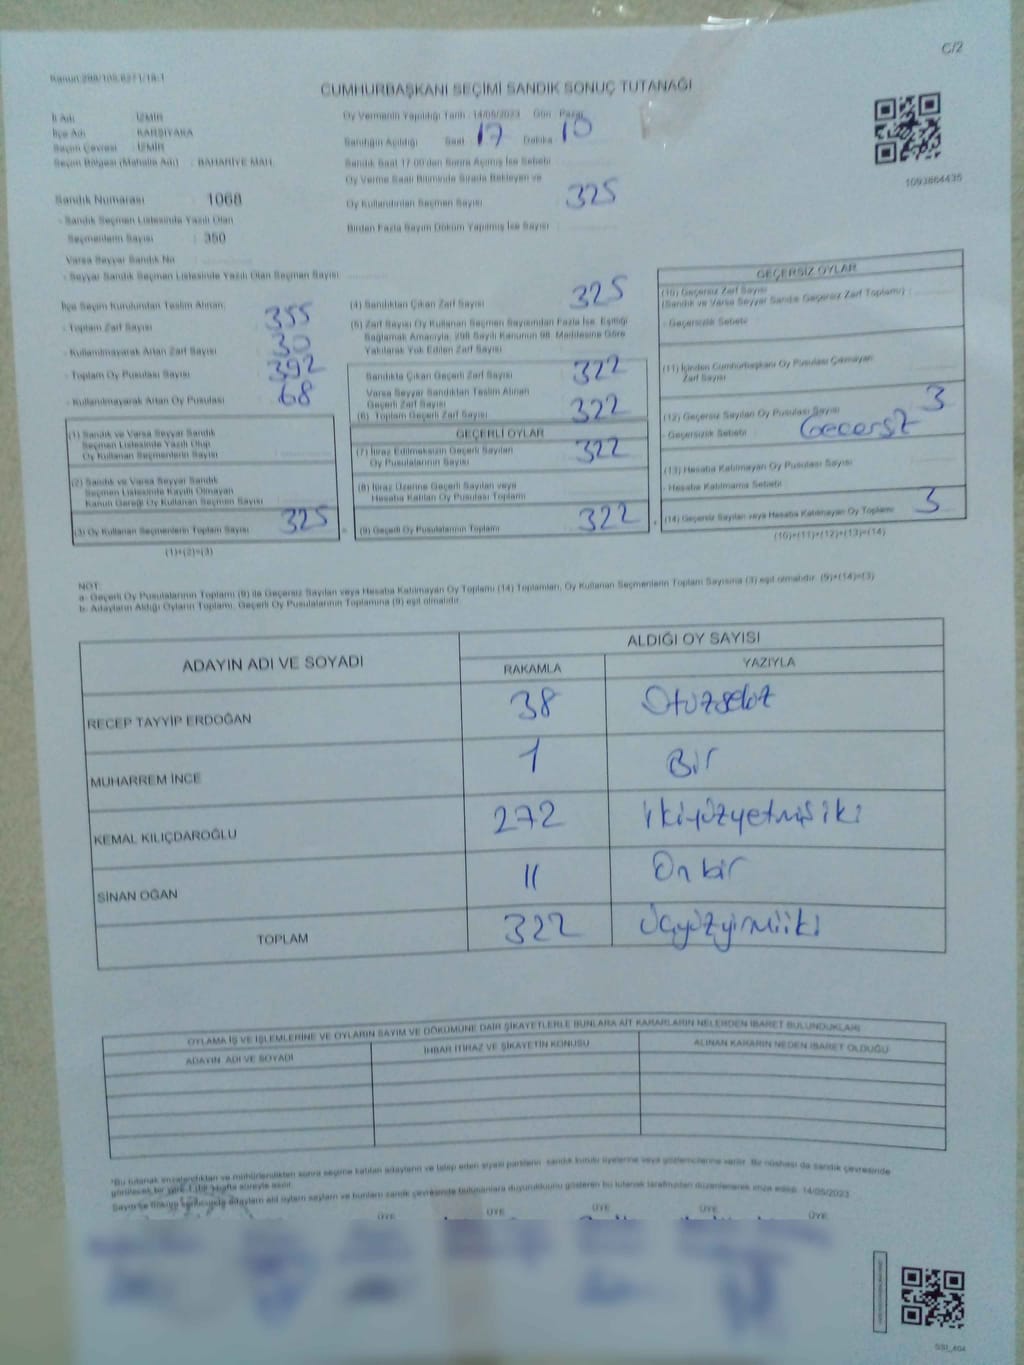 C/2
Kanun:298/105,6271/18-1
CUMHURBAŞKANI SEÇİMİ SANDIK SONUÇ TUTANAĞI
İl Adı : İZMİR
İlçe Adı : KARŞIYAKA
Seçim Çevresi : İZMİR
Seçim Bölgesi (Mahalle Adı) : BAHARİYE MAH.
Oy Vermenin Yapıldığı Tarih : 14/05/2023 Gün : Pazar
Sandığın Açıldığı Saat 17 Dakika 10
Sandık Saat 17:00'den Sonra Açılmış İse Sebebi
Oy Verme Saati Bitiminde Sırada Bekleyen ve
Oy Kullandırılan Seçmen Sayısı 325
Birden Fazla Sayım Döküm Yapılmış İse Sayısı
1093864435
Sandık Numarası : 1068
- Sandık Seçmen Listesinde Yazılı Olan
Seçmenlerin Sayısı : 350
Varsa Seyyar Sandık No
- Seyyar Sandık Seçmen Listesinde Yazılı Olan Seçmen Sayısı
İlçe Seçim Kurulundan Teslim Alınan;
- Toplam Zarf Sayısı 355
- Kullanılmayarak Artan Zarf Sayısı 30
- Toplam Oy Pusulası Sayısı 392
- Kullanılmayarak Artan Oy Pusulası 68
(1) Sandık ve Varsa Seyyar Sandık
Seçmen Listesinde Yazılı Olup
Oy Kullanan Seçmenlerin Sayısı
(2) Sandık ve Varsa Seyyar Sandık
Seçmen Listesinde Kayıtlı Olmayan
Kanun Gereği Oy Kullanan Seçmen Sayısı
(3) Oy Kullanan Seçmenlerin Toplam Sayısı 325
(1)+(2)=(3)
(4) Sandıktan Çıkan Zarf Sayısı 325
(5) Zarf Sayısı Oy Kullanan Seçmen Sayısından Fazla İse, Eşitliği
Sağlamak Amacıyla, 298 Sayılı Kanunun 98. Maddesine Göre
Yakılarak Yok Edilen Zarf Sayısı
Sandıkta Çıkan Geçerli Zarf Sayısı 322
Varsa Seyyar Sandıktan Teslim Alınan
Geçerli Zarf Sayısı
(6) Toplam Geçerli Zarf Sayısı 322
GEÇERLİ OYLAR
(7) İtiraz Edilmeksizin Geçerli Sayılan
Oy Pusulalarının Sayısı 322
(8) İtiraz Üzerine Geçerli Sayılan veya
Hesaba Katılan Oy Pusulası Toplamı
(9) Geçerli Oy Pusulalarının Toplamı 322
GEÇERSİZ OYLAR
(10) Geçersiz Zarf Sayısı
(Sandık ve Varsa Seyyar Sandık Geçersiz Zarf Toplamı) :
- Geçersizlik Sebebi
(11) İçinden Cumhurbaşkanı Oy Pusulası Çıkmayan
Zarf Sayısı
(12) Geçersiz Sayılan Oy Pusulası Sayısı 3
- Geçersizlik Sebebi Gecersz
(13) Hesaba Katılmayan Oy Pusulası Sayısı
- Hesaba Katılmama Sebebi
(14) Geçersiz Sayılan veya Hesaba Katılmayan Oy Toplamı 3
(10)+(11)+(12)+(13)=(14)
NOT:
a- Geçerli Oy Pusulalarının Toplamı (9) ile Geçersiz Sayılan veya Hesaba Katılmayan Oy Toplamı (14) Toplamları, Oy Kullanan Seçmenlerin Toplam Sayısına (3) eşit olmalıdır. (9)+(14)=(3)
b- Adayların Aldığı Oyların Toplamı, Geçerli Oy Pusulalarının Toplamına (9) eşit olmalıdır.
ADAYIN ADI VE SOYADI ALDIĞI OY SAYISI
RAKAMLA YAZIYLA
RECEP TAYYİP ERDOĞAN 38 Otuzsekiz
MUHARREM İNCE 1 Bir
KEMAL KILIÇDAROĞLU 272 ikiyüzyetmişiki
SİNAN OĞAN 11 Onbir
TOPLAM 322 Üçyüzyirmiiki
OYLAMA İŞ VE İŞLEMLERİNE VE OYLARIN SAYIM VE DÖKÜMÜNE DAİR ŞİKAYETLERLE BUNLARA AİT KARARLARIN NELERDEN İBARET BULUNDUKLARI
ADAYIN ADI VE SOYADI İHBAR İTİRAZ VE ŞİKAYETİN KONUSU ALINAN KARARIN NEDEN İBARET OLDUĞU
*Bu tutanak imzalandıktan ve mühürlendikten sonra seçime katılan adayların ve talep eden siyasi partilerin sandık kurulu üyelerine veya gözlemcilerine verilir. Bir nüshası da sandık çevresinde
görülecek bir yere 1 bir hafta süreyle asılır.
bunların sandık çevresinde bulunanlara duyurulduğunu gösteren bu tutanak tarafımızdan düzenlenerek imza edildi. 14/05/2023
ÜYE ÜYE ÜYE ÜYE ÜYE
SSI_404